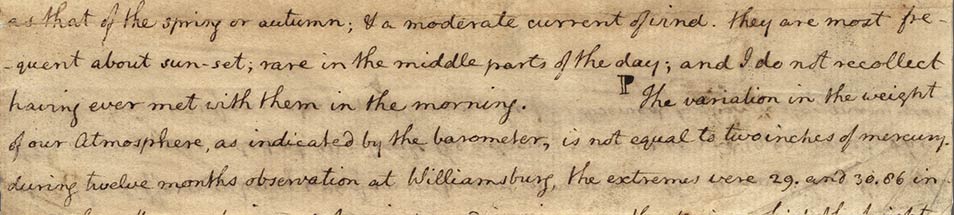 as that of the spring or autumn; & a moderate current of wind. they are most fre-
-quent about sun-set; rare in the middle parts of the day; and I do not recollect
having ever met with them in the morning. P The variation in the weight
of our Atmosphere, as indicated by the barometer, is not equal to two inches of mercury.
during twelve months observation at Williamsburg, the extremes were 29. and 30.86 in-